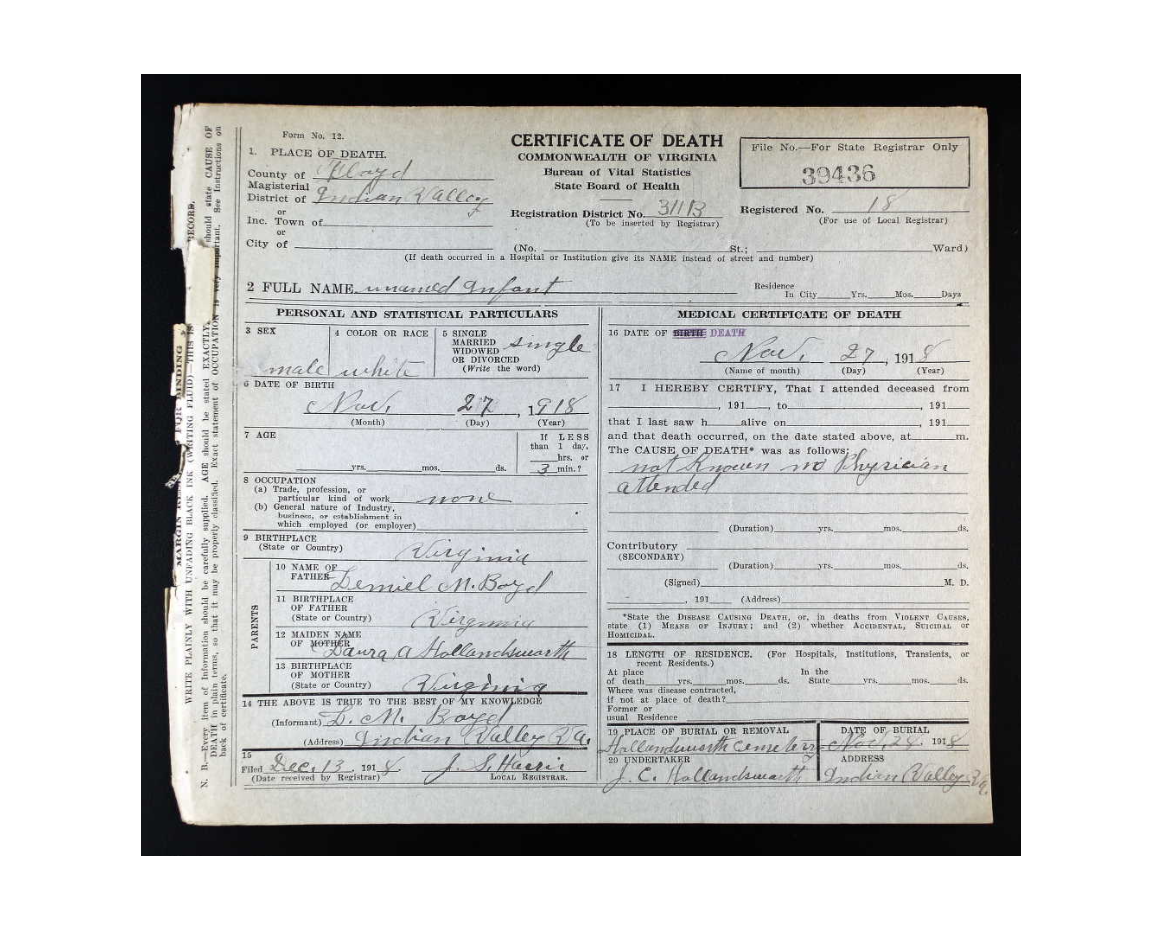 Form No. 12.
CERTIFICATE OF DEATH
COMMONWEALTH OF VIRGINIA
Bureau of Vital Statistics
State Board of Health
File No.—For State Registrar Only
39436
1. PLACE OF DEATH.
County of Floyd
Magisterial District of Indian Valley
or
Inc. Town of
or
City of
Registration District No. 311B
(To be inserted by Registrar)
Registered No. 18
(For use of Local Registrar)
(No. St.; Ward)
(If death occurred in a Hospital or Institution give its NAME instead of street and number)
2 FULL NAME unamed Infant
Residence
In City Yrs. Mos. Days
PERSONAL AND STATISTICAL PARTICULARS
3 SEX
male
4 COLOR OR RACE
white
5 SINGLE
MARRIED
WIDOWED
OR DIVORCED
(Write the word)
single
6 DATE OF BIRTH
Nov. 27, 1918
(Month) (Day) (Year)
7 AGE
yrs. mos. ds.
If LESS
than 1 day,
hrs. or
3 min.?
8 OCCUPATION
(a) Trade, profession, or
particular kind of work none
(b) General nature of Industry,
business, or establishment in
which employed (or employer)
9 BIRTHPLACE
(State or Country) Virginia
PARENTS
10 NAME OF
FATHER Lemiel M. Boyd
11 BIRTHPLACE
OF FATHER
(State or Country) Virginia
12 MAIDEN NAME
OF MOTHER Laura A Hollandsworth
13 BIRTHPLACE
OF MOTHER
(State or Country) Virginia
14 THE ABOVE IS TRUE TO THE BEST OF MY KNOWLEDGE
(Informant) L. M. Boyd
(Address) Indian Valley Va.
15
Filed Dec. 13, 1918 J. S. Harris
(Date received by Registrar) LOCAL REGISTRAR.
MEDICAL CERTIFICATE OF DEATH
16 DATE OF BIRTH DEATH
Nov. 27, 1918
(Name of month) (Day) (Year)
17 I HEREBY CERTIFY, That I attended deceased from
, 191 , to , 191
that I last saw h alive on , 191
and that death occurred, on the date stated above, at m.
The CAUSE OF DEATH* was as follows:
not known no Physician
attended
(Duration) yrs. mos. ds.
Contributory
(SECONDARY)
(Duration) yrs. mos. ds.
(Signed) M. D.
, 191 (Address)
*State the DISEASE CAUSING DEATH, or, in deaths from VIOLENT CAUSES,
state (1) MEANS OF INJURY; and (2) whether ACCIDENTAL, SUICIDAL or
HOMICIDAL.
18 LENGTH OF RESIDENCE. (For Hospitals, Institutions, Transients, or
recent Residents.)
At place In the
of death yrs. mos. ds. State yrs. mos. ds.
Where was disease contracted,
if not at place of death?
Former or
usual Residence
19 PLACE OF BURIAL OR REMOVAL
Hollandsworth Cemetery
DATE OF BURIAL
Nov. 28, 1918
20 UNDERTAKER
J. C. Hollandsworth
ADDRESS
Indian Valley Va.
WRITE PLAINLY WITH UNFADING BLACK INK (WRITING FLUID)—THIS IS RECORD.
N. B.—Every item of information should be carefully supplied. AGE should be stated EXACTLY. should state CAUSE OF
DEATH in plain terms, so that it may be properly classified. Exact statement of OCCUPATION is very important. See Instructions on
back of certificate.